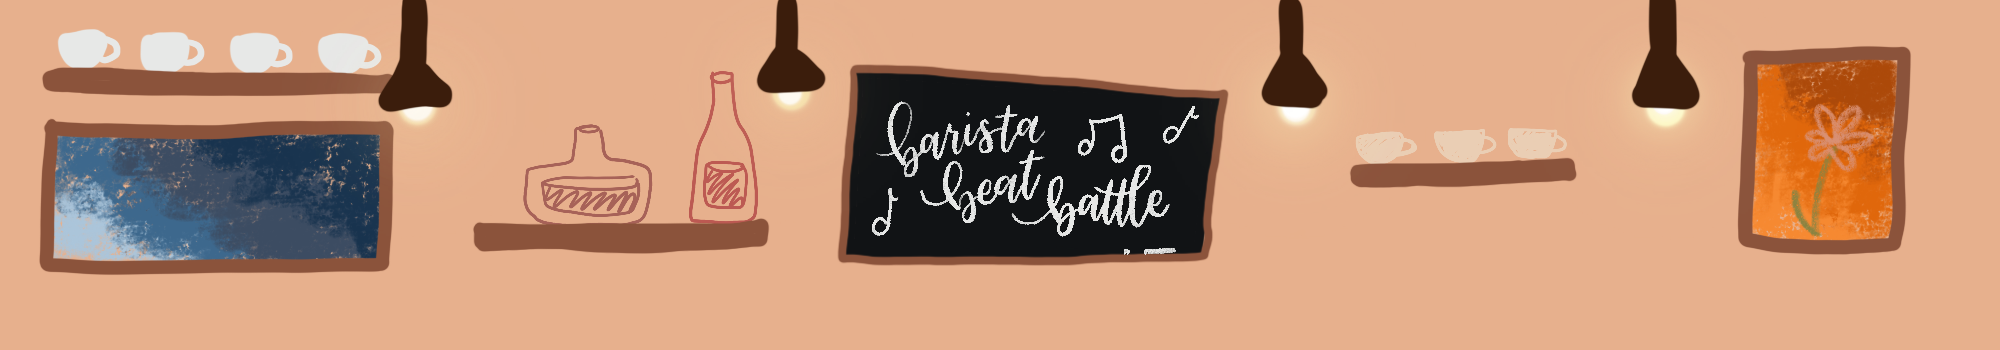 barista
beat
battle